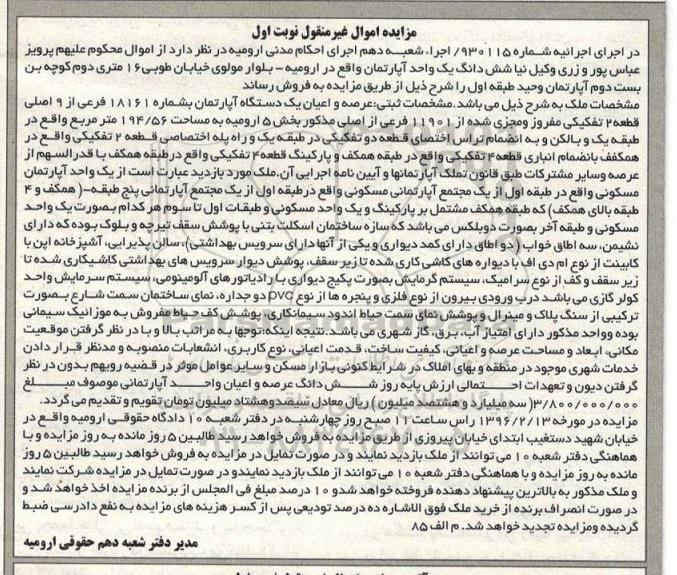 مزایده اموال غیرمنقول نوبت اول
در اجرای اجرائیه شماره ۹۳۰۱۱۵/ اجرا، شعبه دهم اجرای احکام مدنی ارومیه در نظر دارد از اموال محکوم علیهم پرویز
عباس پور و زری وکیل نیا شش دانگ یک واحد آپارتمان واقع در ارومیه - بلوار مولوی خیابان طوبی ۱۶ متری دوم کوچه بن
بست دوم آپارتمان وحید طبقه اول را شرح ذیل از طریق مزایده به فروش رساند
مشخصات ملک به شرح ذیل می باشد. مشخصات ثبتی: عرصه و اعیان یک دستگاه آپارتمان بشماره ۱۸۱۶۱ فرعی از ۹ اصلی
قطعه ۲ تفکیکی مفروز ومجزی شده از ۱۱۹۰۱ فرعی از اصلی مذکور بخش ۵ ارومیه به مساحت ۱۹۴/۵۶ متر مربع واقع در
طبقه یک و بالکن و به انضمام تراس اختصای قطعه دو تفکیکی در طبقه یک و راه پله اختصاصی قطعه ۲ تفکیکی واقع در
همکفف بانضمام انباری قطعه ۲ تفکیکی واقع در طبقه همکف و پارکینگ قطعه ۴ تفکیکی واقع در طبقه همکف با قدرالسهم از
عرصه وسایر مشترکات طبق قانون تملک آپارتمانها و آیین نامه اجرایی آن. ملک مورد بازدید عبارت است از یک واحد آپارتمان
مسکونی واقع در طبقه اول از یک مجتمع آپارتمانی مسکونی و اقع در طبقه اول از یک مجتمع آپارتمانی پنج طبقه-( همکف و ۴
طبقه بالای همکف) که طبقه همکف مشتمل بر پارکینگ و یک واحد مسکونی و طبقات اول تا سوم هر کدام بصورت یک واحد
مسکونی و طبقه آخر بصورت دوبلکس می باشد که سازه ساختمان اسکلت بتنی با پوشش سقف تیرچه و بلوک بوده که دارای
نشیمن، سه اطاق خواب (دو اطاق دارای کمد دیواری و یکی از آنها دارای سرویس بهداشتی)، سالن پذیرایی، آشپزخانه اپن با
کابینت از نوع ام دی اف با دیواره های کاشی کاری شده تا زیر سقف، پوشش دیوار سرویس های بهداشتی کاشیکاری شده تا
زیر سقف و کف از نوع سرامیک، سیستم گرمایش بصورت پکیج دیواری با رادیاتورهای آلومینومی، سیستم سرمایش واحد
کولر گازی می باشد درب ورودی بیرون از نوع فلزی و پنجره ها از نوع pvc دو جداره، نمای ساختمان سمت شارع بصورت
ترکیبی از سنگ پلاک و مینرال و پوشش نمای سمت حیاط اندود سیمانکاری، پوشش کف حیاط مفروش به موزائیک سیمانی
بوده وواحد مذکور دارای امتیاز آب، برق، گاز شهری می باشد. نتیجه اینکه: توجها به مراتب بالا و با در نظر گرفتن موقعیت
مکانی، ابعاد و مساحت عرصه و اعیانی، کیفیت ساخت، قدمت اعیانی، نوع کاربری، انشعابات منصوبه و مدنظر قرار دادن
خدمات شهری موجود در منطقه و بهای املاک در شرایط کنونی بازار مسکن و سایر عوامل موثر در قضیه رویهم بدون در نظر
گرفتن دیون و تعهدات احتمالی ارزش پایه روز شش دانگ عرصه و اعیان واحد آپارتمانی موصوف مبلغ
۳/۸۰۰/۰۰۰/۰۰۰( سه میلیارد و هشتصد میلیون ) ریال معادل سیصدوهشتاد میلیون تومان تقویم و تقدیم می گردد.
مزایده در مورخه ۱۳۹۶/۲/۱۳ راس ساعت ۱۱ صبح روز چهارشنبه در دفتر شعبه ۱۰ دادگاه حقوقی ارومیه واقع در
خیابان شهید دستغیب ابتدای خیابان پیروزی از طریق مزایده به فروش خواهد رسید طالبین ۵ روز مانده به روز مزایده و با
هماهنگی دفتر شعبه ۱۰ می توانند از ملک بازدید نمایند و در صورت تمایل در مزایده به فروش خواهد رسید طالبین ۵ روز
مانده به روز مزایده و با هماهنگی دفتر شعبه ۱۰ می توانند از ملک بازدید نمایندو در صورت تمایل در مزایده شرکت نمایند
و ملک مذکور به بالاترین پیشنهاد دهنده فروخته خواهد شدو ۱۰ درصد مبلغ فی المجلس از برنده مزایده اخذ خواهد شد و
در صورت انصراف برنده از خرید ملک فوق الاشاره ده درصد تودیعی پس از کسر هزینه های مزایده به نفع دادرسی ضبط
گردیده ومزایده تجدید خواهد شد. م الف ۸۵
مدیر دفتر شعبه دهم حقوقی ارومیه